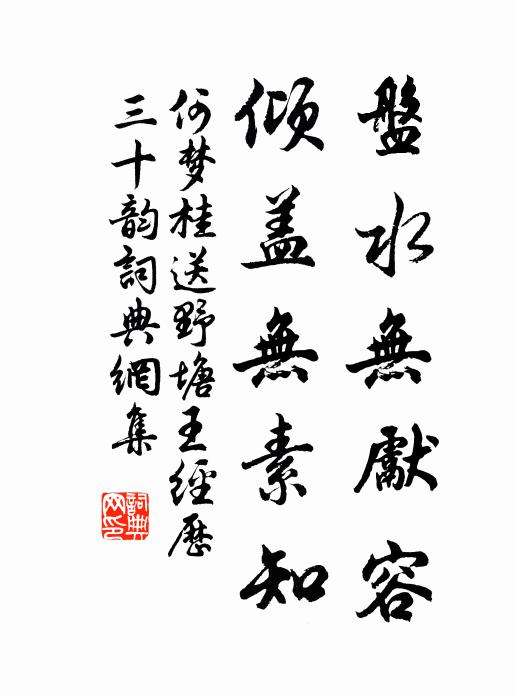 盤水無獻容
傾蓋無素知
何梦桂送野塘王經歷
三十韵詞典網集
詞典网印